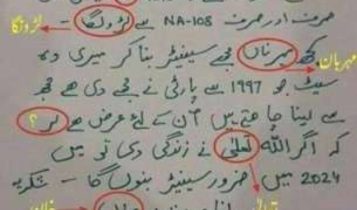 صرف اور صرف NA-108 سے لڑولگا - لڑونگا
کچھ مہرناں مجھے سینیٹر بنا کر میری وہ
مہربان
سیٹ جو 1997 سے پارٹی نے مجھے دی ھے مجھ
سے لینا چاھتے ہیں اُن کے لئے عرض ھے لر ؟
کہ اگر اللہ تعلیٰ نے زندگی دی تو میں
2024 میں ضرور سینیٹر بنوں گا - شکریہ